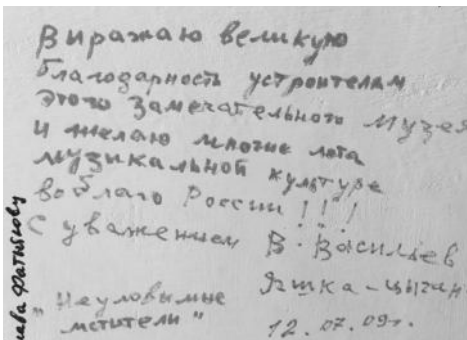 Виражаю великую
благодарность устроителям
этого замечательного музея
и желаю многие лета
музикальной культуре
во благо России!!!
С уважением В. Васильев
Яшка-цыган
"Неуловимые
мстители"
12.07.09г.